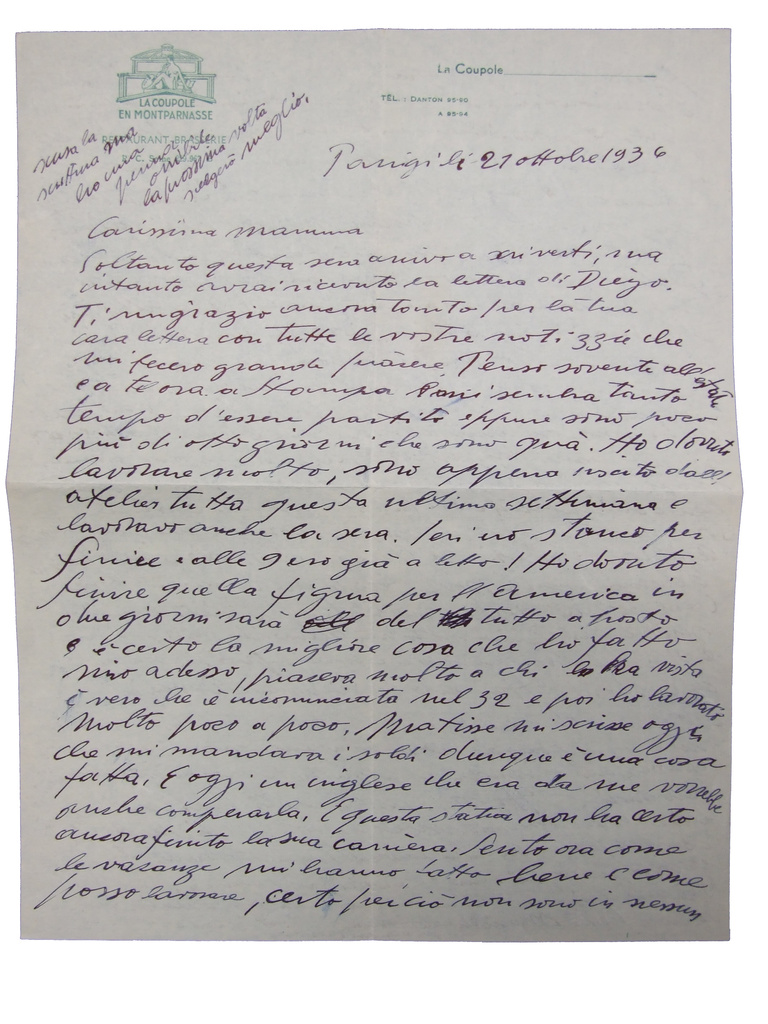 LA COUPOLE
EN MONTPARNASSE
RESTAURANT-BRASSERIE
La Coupole
TÉL. : DANTON 95-90
A 95-94
scusa la
scrittura ma
ho una
penna
orribile
la prossima volta
scegerò meglio.
Parigi li 21 ottobre 1936
Carissima mamma
Soltanto questa sera arrivo a scriverti, ma
intanto avrai ricevuto la lettera di Diego.
Ti ringrazio ancora tanto per la tua
cara lettera con tutte le vostre notizzie che
mi fecero grande piacere. Penso sovente all'estate
e a te ora a Stampa sembra tanto
tempo d'essere partito eppure sono poco
più di otto giorni che sono quà. Ho dovuto
lavorare molto, sono appena uscito dall'
atelier tutta questa ultima settimana e
lavoravo anche la sera. Ieri ero stanco per
finire e alle 9 ero già a letto! Ho dovuto
finire quella figura per l'America in
due giorni sarà del tutto a posto
e è certo la migliore cosa che ho fatto
sino adesso, piaceva molto a chi la vista
è vero che è incominciata nel 32 e poi ho lavorato
molto poco a poco. Matisse mi scrisse oggi
che mi mandara i soldi dunque è una cosa
fatta. E oggi un inglese che era da me vorrebbe
anche comperarla. E questa statua non ha certo
ancora finito la sua carriera. Sento ora come
le vacanze mi hanno fatto bene e come
posso lavorare, certo perciò non sono in nessun